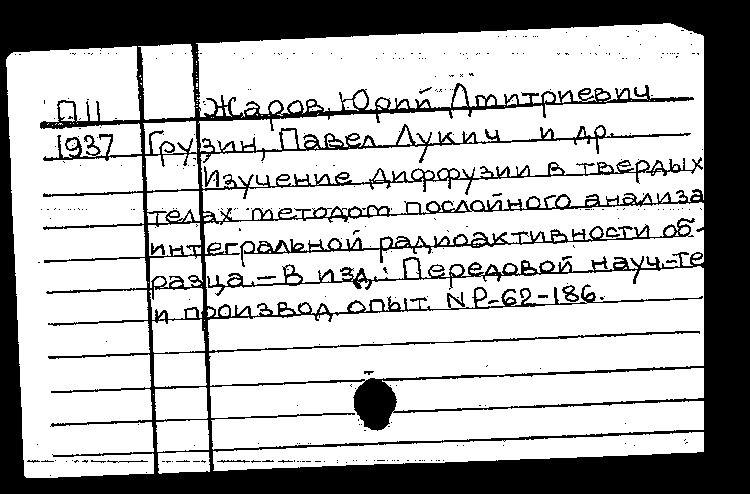 П11 Жаров, Юрий Дмитриевич
1937 Грузин, Павел Лукич и др.
Изучение диффузии в твердых
телах методом послойного анализа
интегральной радиоактивности об-
разца.-В изд.: Передовой науч.-те
и производ. опыт. NP-62-186.